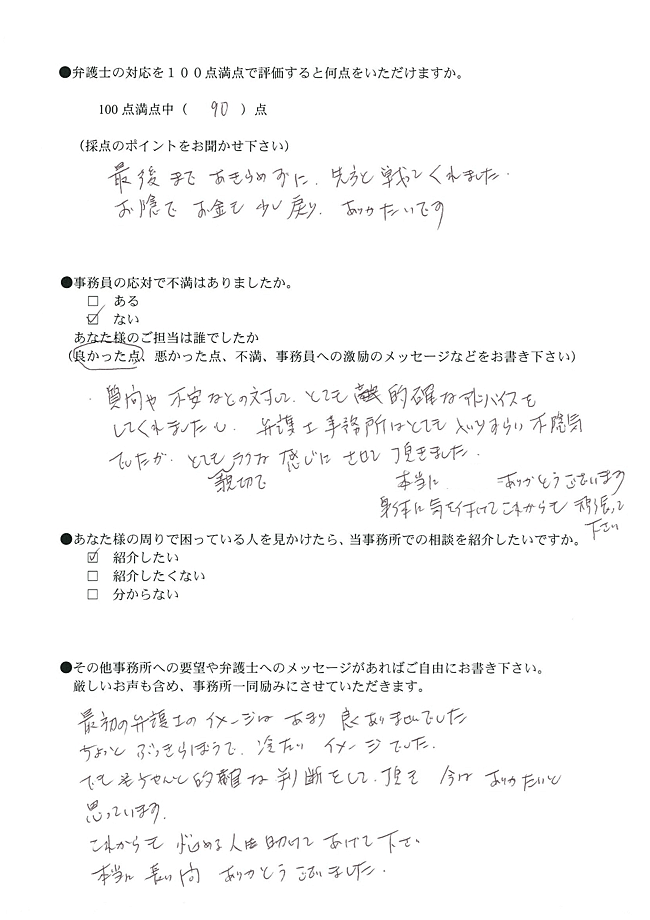 ●弁護士の対応を１００点満点で評価すると何点をいただけますか。
100点満点中（ 90 ）点
（採点のポイントをお聞かせ下さい）
最後まであきらめずに、先方と戦ってくれました。
お陰でお金も少し戻り、ありがたいです
●事務員の応対で不満はありましたか。
□ ある
☑ ない
あなた様のご担当は誰でしたか
（良かった点、悪かった点、不満、事務員への激励のメッセージなどをお書き下さい）
・質問や不安などの対して、とても 的確なアドバイスを
してくれましたし、弁護士事務所はとても入りずらい不陰気
でしたが、とても親切でラクな感じにさせて頂きました。
本当に ありがとうございます
身体に気を付けてこれからも頑張って
下さい
●あなた様の周りで困っている人を見かけたら、当事務所での相談を紹介したいですか。
☑ 紹介したい
□ 紹介したくない
□ 分からない
●その他事務所への要望や弁護士へのメッセージがあればご自由にお書き下さい。
厳しいお声も含め、事務所一同励みにさせていただきます。
最初の弁護士のイメージはあまり良くありませんでした
ちょっとぶっきらぼうで、冷たいイメージでした。
でもきちんと的確な判断をして、頂き 今はありがたいと
思っています。
これからも悩める人を助けてあげて下さい
本当に長い間ありがとうございました。